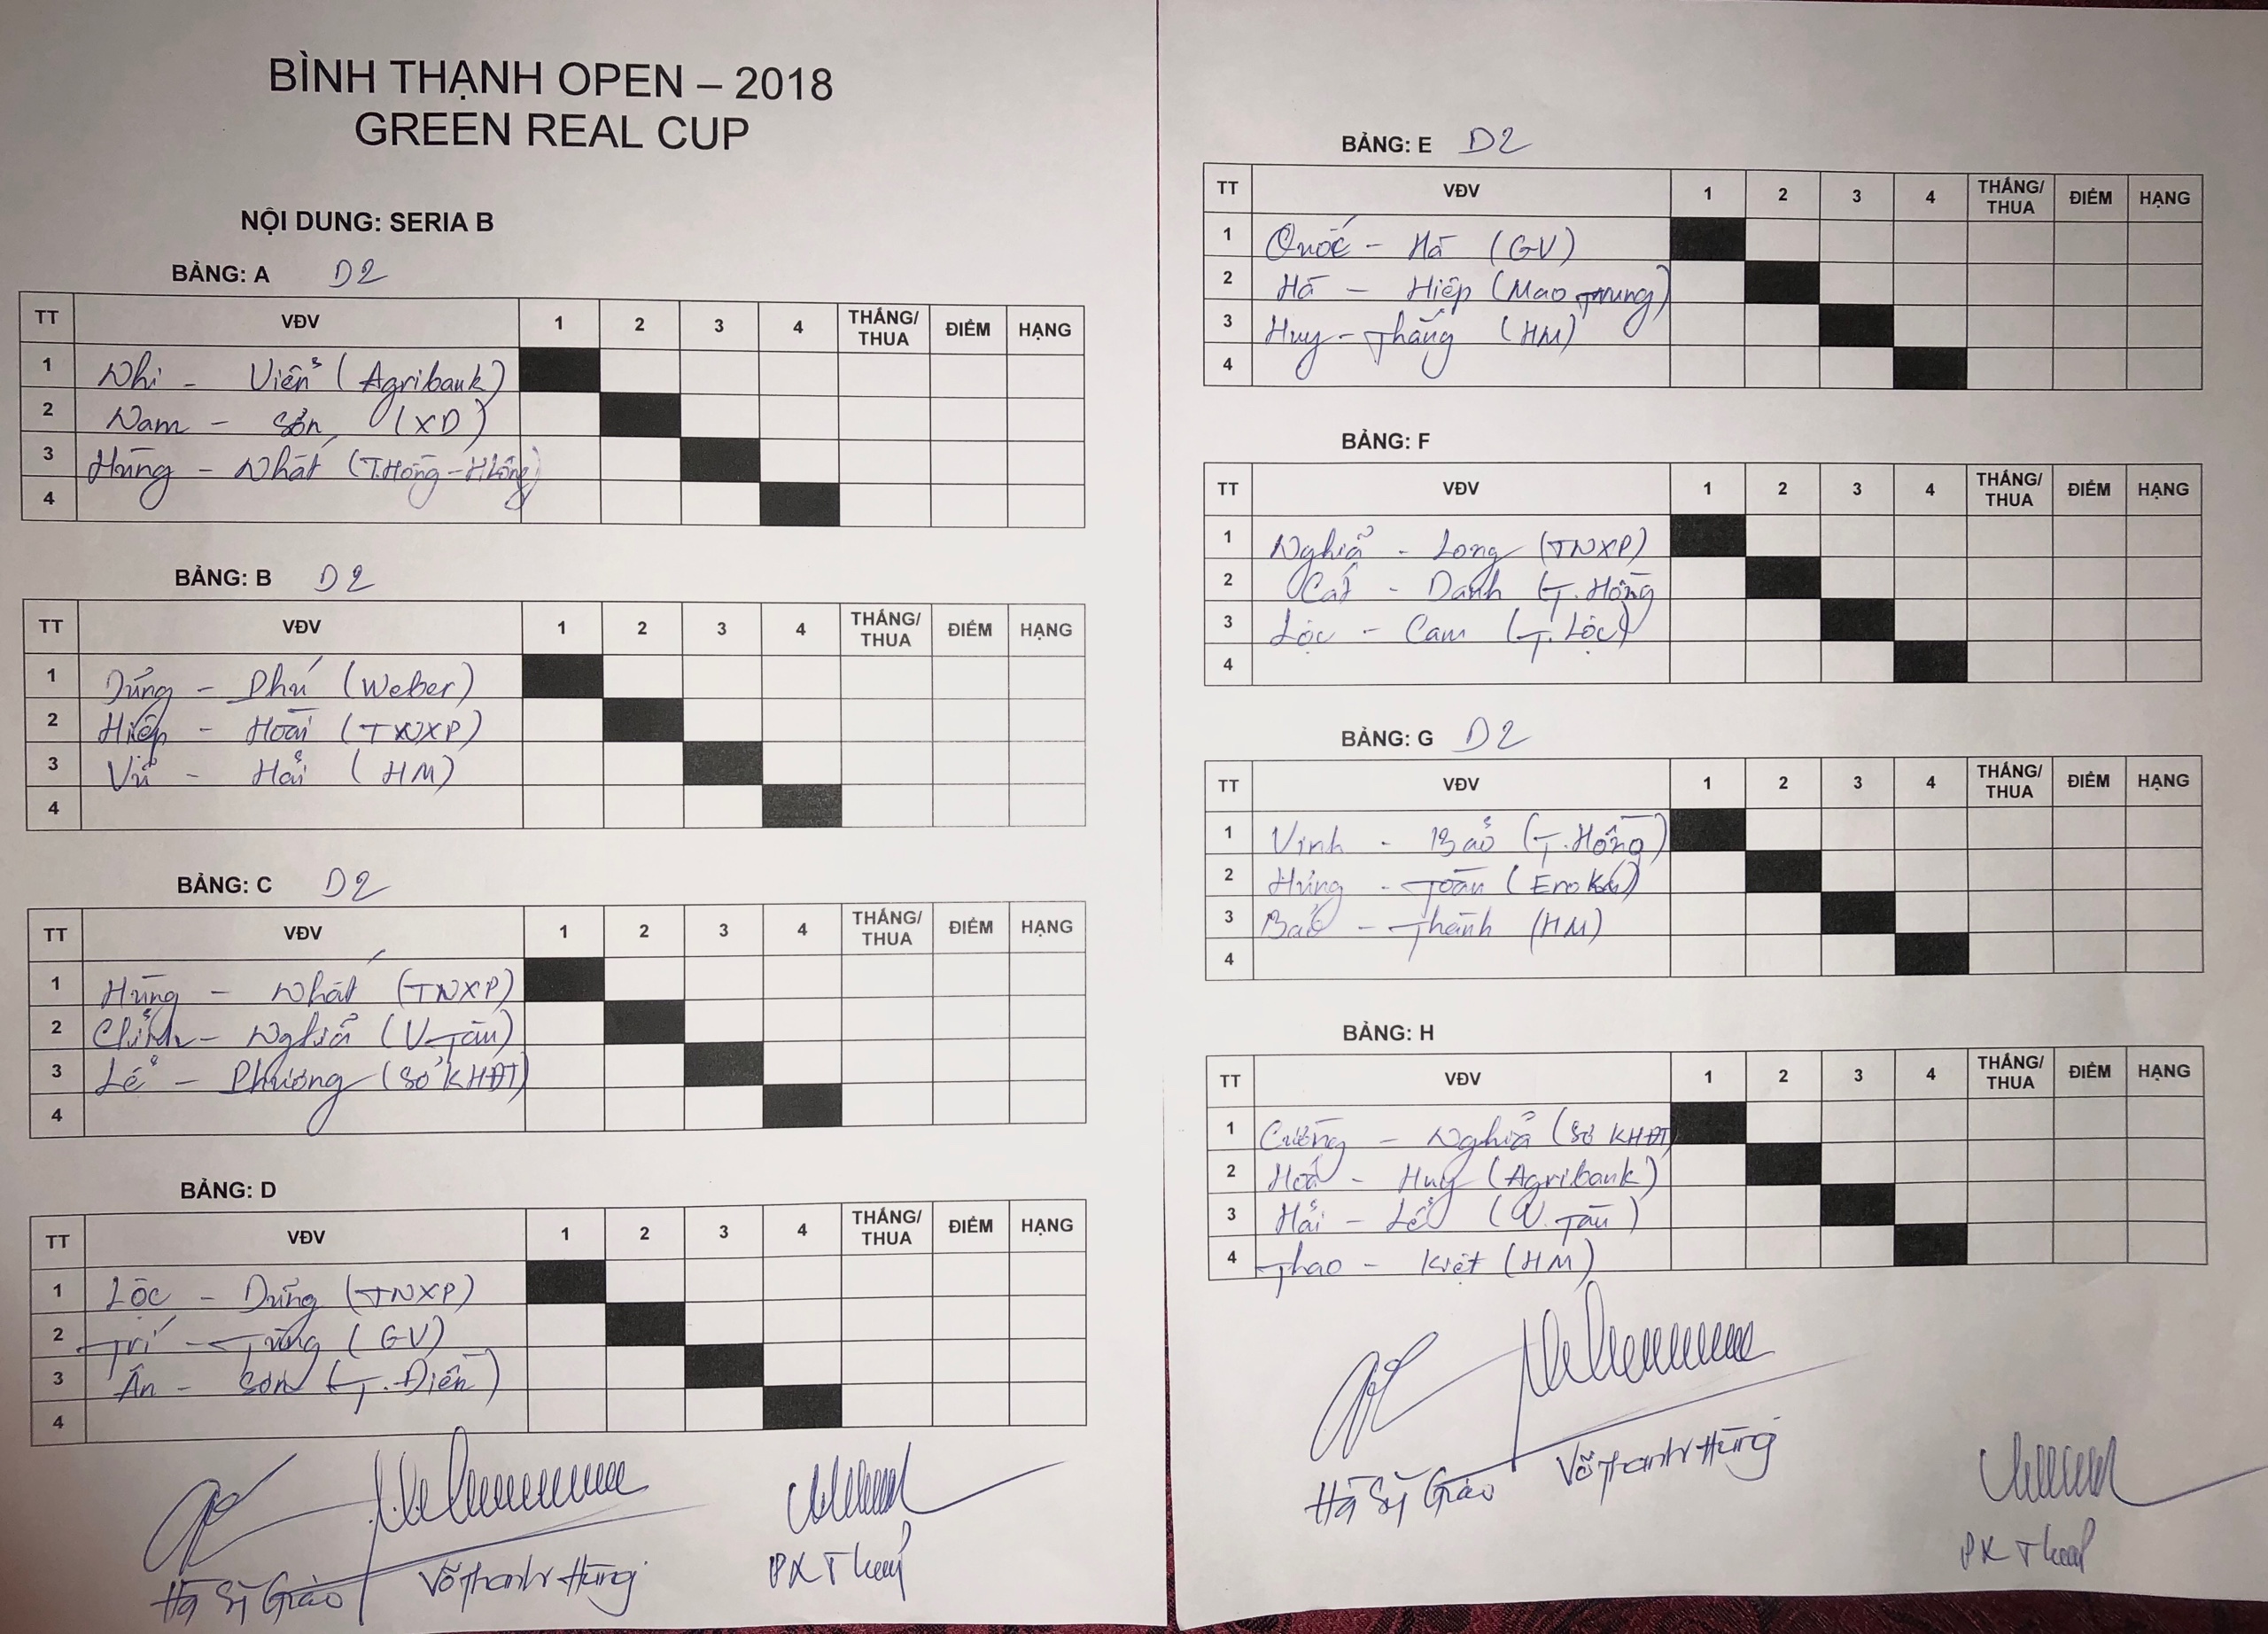 BÌNH THẠNH OPEN – 2018
GREEN REAL CUP
NỘI DUNG: SERIA B
BẢNG: A D2
TT VĐV 1 2 3 4 THẮNG/THUA ĐIỂM HẠNG
1 Nhi - Viễn (Agribank)
2 Nam - Sơn (XD)
3 Hùng - Nhất (T.Hồng - H Long)
4
BẢNG: B D2
TT VĐV 1 2 3 4 THẮNG/THUA ĐIỂM HẠNG
1 Dũng - Phú (Weber)
2 Hiệp - Hoài (TNXP)
3 Vũ - Hải (HM)
4
BẢNG: C D2
TT VĐV 1 2 3 4 THẮNG/THUA ĐIỂM HẠNG
1 Hùng - Nhất (TNXP)
2 Chỉnh - Nghĩa (V.Tàu)
3 Lễ - Phương (Sở KHĐT)
4
BẢNG: D
TT VĐV 1 2 3 4 THẮNG/THUA ĐIỂM HẠNG
1 Lộc - Dũng (TNXP)
2 Trí - Tùng (GV)
3 Ân - Sơn (T.Điền)
4
Hà Sỹ Giáo Võ Thanh Hùng PX
BẢNG: E D2
TT VĐV 1 2 3 4 THẮNG/THUA ĐIỂM HẠNG
1 Quốc - Hà (GV)
2 Hà - Hiệp (Mao Trung)
3 Huy - Thắng (HM)
4
BẢNG: F
TT VĐV 1 2 3 4 THẮNG/THUA ĐIỂM HẠNG
1 Nghĩa - Long (TNXP)
2 Cát - Danh (T.Hồng
3 Lộc - Cam (T.Lộc)
4
BẢNG: G D2
TT VĐV 1 2 3 4 THẮNG/THUA ĐIỂM HẠNG
1 Vinh - Bảo (T.Hồng)
2 Hưng - Toàn
3 Bảo - Thành (HM)
4
BẢNG: H
TT VĐV 1 2 3 4 THẮNG/THUA ĐIỂM HẠNG
1 Cường - Nghĩa (Sở KHĐT)
2 Hoà - Huy (Agribank)
3 Hải - Lễ (V.Tàu)
4 Thao - Kiệt (HM)
Hà Sỹ Giáo Võ Thanh Hùng
PX